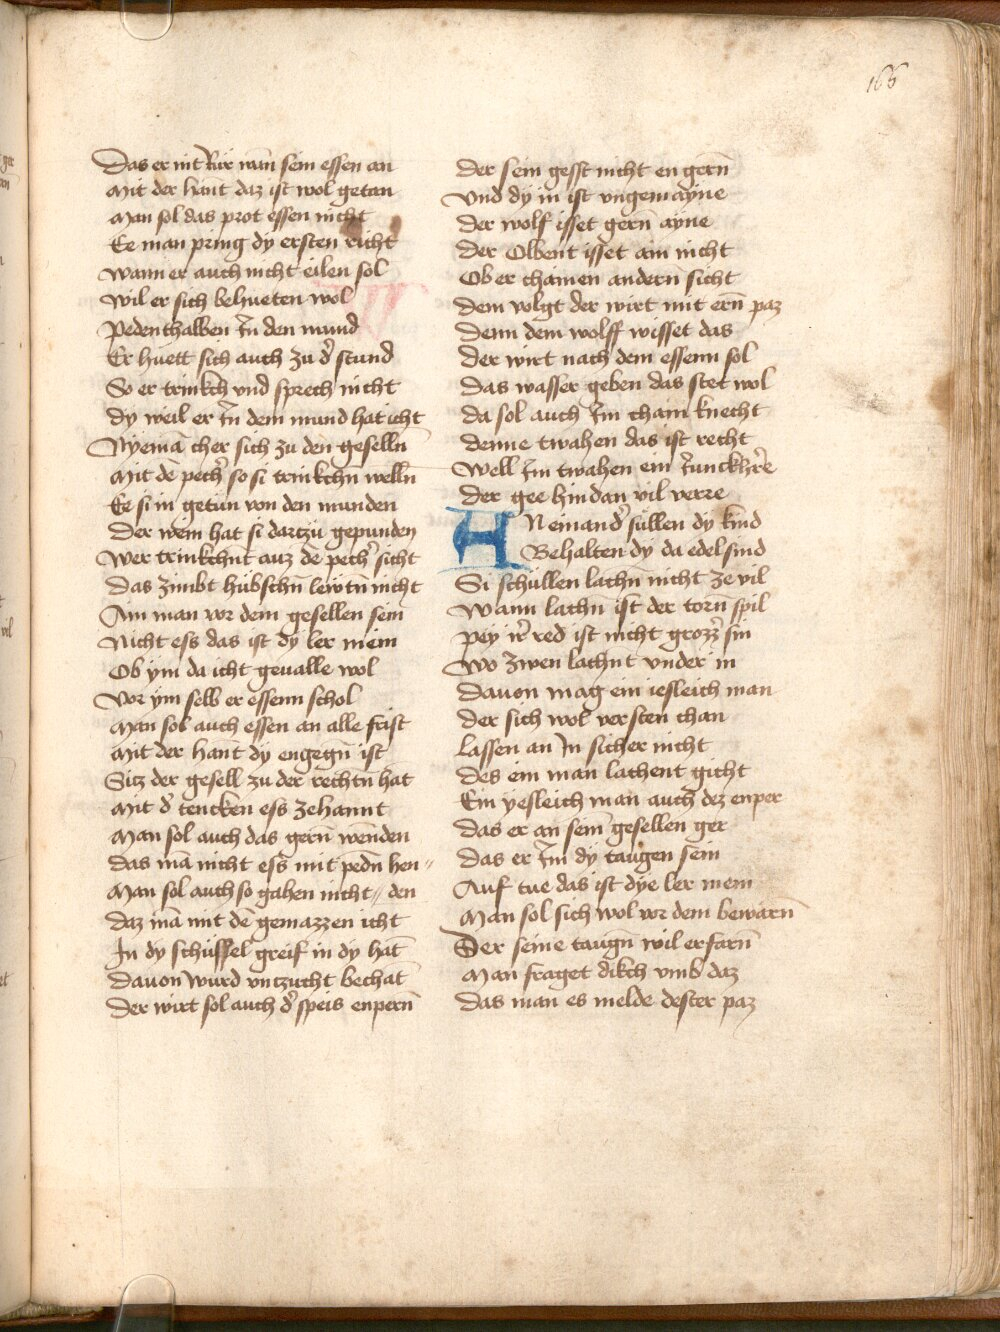 166
Das er nit Rür wan sein essen an
Mit der hant daz ist wol getan
Man sol das prot essen nicht
Ee man pring dy ersten richt
Wann er auch nicht eilen sol
Wil er sich behueten wol
Pedenthalben In den mund
Er huett sich auch zu d̕ stund
So er trinkch vnd sprech nicht
Dy weil er In dem mund hat icht
Nyemā cher sich zu den geselln̄
Mit dē pech̕ so si trinkchn̄ welln̄
Ee si in getūn von den munden
Der wein hat si dartzu gepunden
Wer trinkchūt auz dē pech̕ sicht
Das zimbt hübschn̄ lewtn̄ nicht
Ain man vor dem gesellen sein
Nicht ess das ist dy ler mein
Ob ym da icht geualle wol
Vor ym selb er essenn schol
Man sol auch essen an alle frist
Mit der hant dy engegn̄ ist
Sitz der gesell zu der rechtn̄ hāt
Mit d̕ tencken ess zehannt
Man sol auch das gern̄ wenden
Das mā nicht ess mit pedn̄ hen〃
Man sol auch so gahen nicht 〃den
Daz mā mit dē gemazzen icht
In dy schüssel greif in dy hāt
Dauon wurd vntzucht bechāt
Der wirt sol auch d̕ speis enpern̄
Der sein gesst nicht en gern̄
Vnd dy in ist vngemayne
Der wolf isset gern̄ ayne
Der Olbent isset ain nicht
Ob er chainen andern̄ sicht
Dem volgt der wirt mit ern̄ paz
Denn dem wolff wisset das
Der wirt nach dem essenn sol
Das wasser geben das stet wol
Da sol auch Im chain knecht
Denne twahen das ist recht
Well Im twahen ein Iunckh̕re
Der gee hindan vil verre
HNeinand̕ süllen dy kind
Behalten dy da edel sind
Si schullen lachn̄ nicht ze vil
Wann lachn̄ ist der torn̄ spil
Pey ir̕ red ist nicht grozz̕ sin
Wo zwen lachnt vnder in
Dauon mag ein iesleich man
Der sich wol versten chan
Lassen an In sicher nicht
Des ein man lachent gicht
Ein yesleich man auch dez enper
Das er an sein̄ gesellen ger
Das er Im dy taugen sein
Auf tue das ist dye ler mein
Man sol sich wol vor dem bewarn̄
Der seine taugn̄ wil erfarn̄
Man fraget dikch vmb daz
Das man es melde dester paz